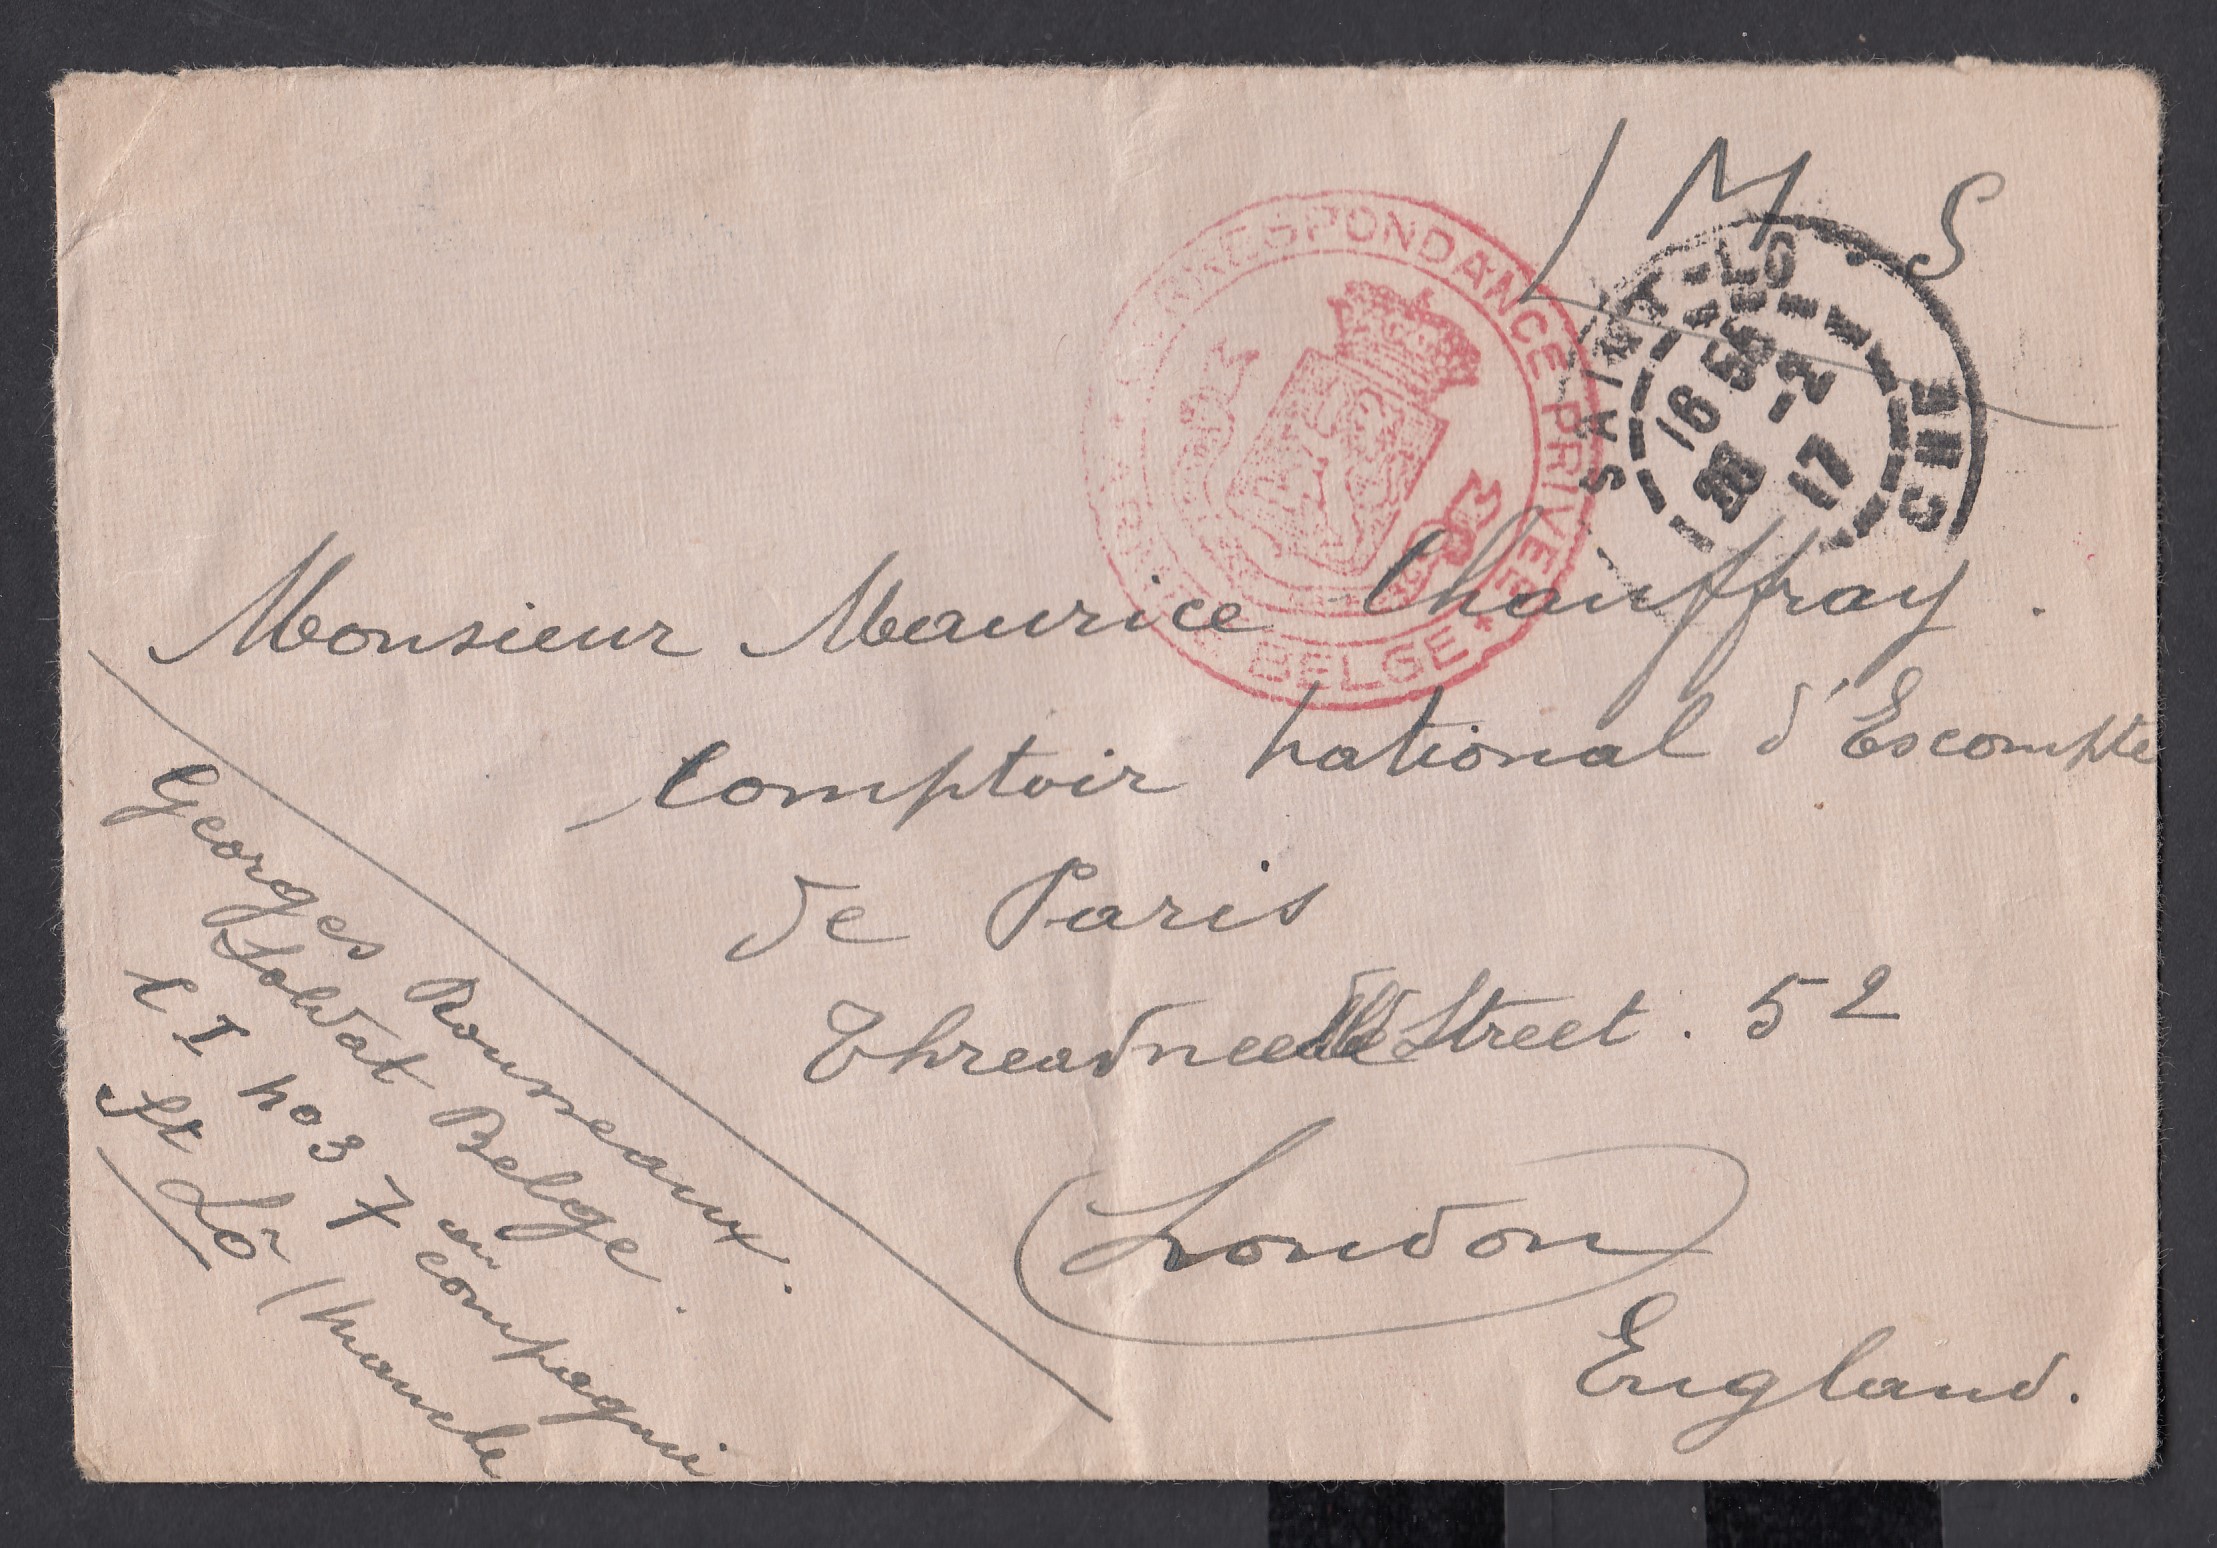 S M
* CORRESPONDANCE PRIVEE *
ARMEE BELGE
SAINT-LO
CHE
16 55
-2
17
Monsieur Maurice Chauffray.
Comptoir national d'Escompte
de Paris
Threadneedle Street. 52
London
England.
Georges Rousseaux.
Soldat Belge.
C I no 3 7 eu compagnie
St Lô / Manche